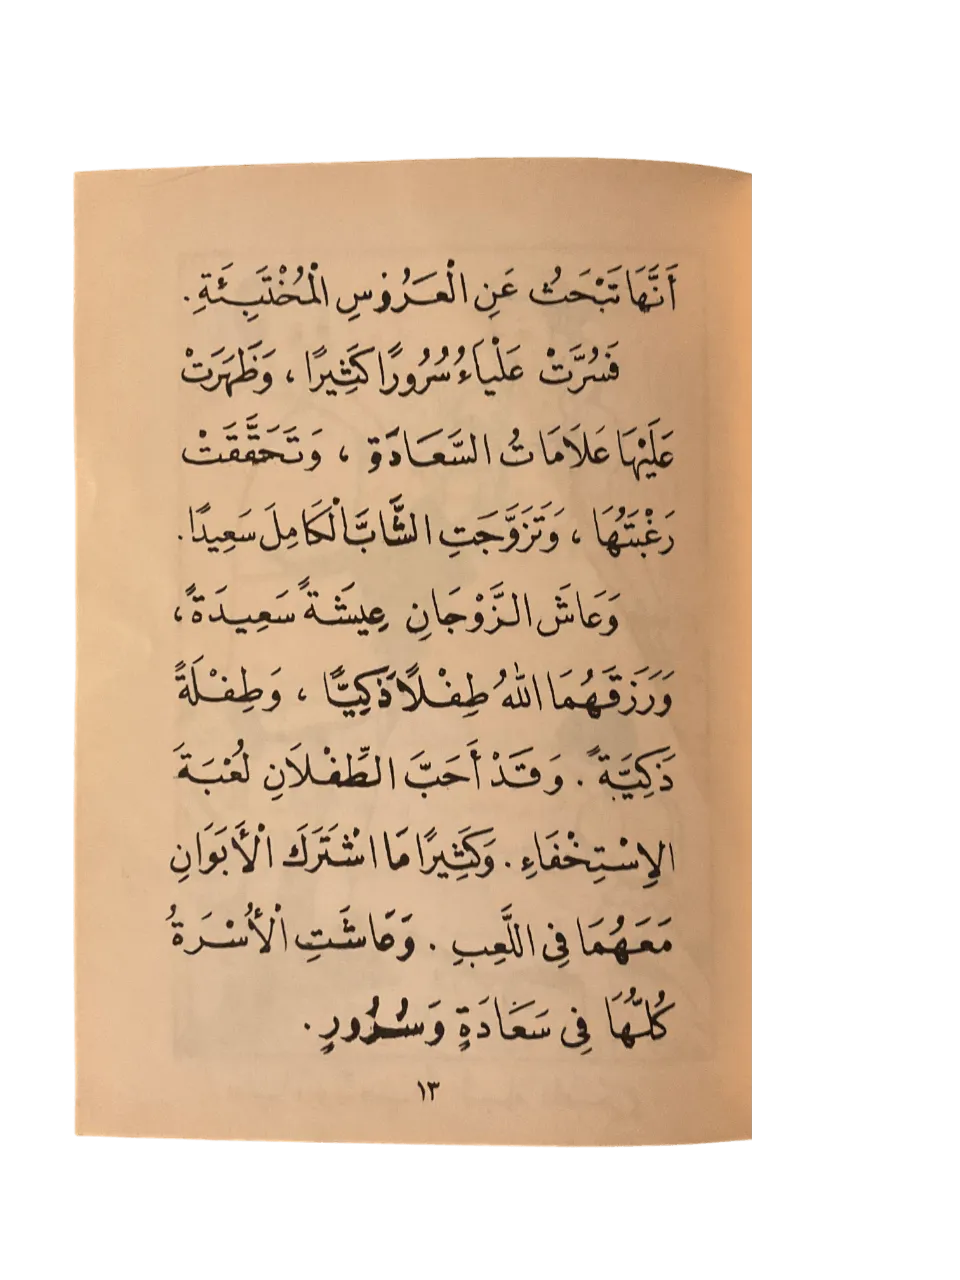 أَنَّهَا تَبْحَثُ عَنِ الْعَرُوسِ الْمُخْتَبِئَةِ.
فَسُرَّتْ عَلْيَاءُ سُرُورًا كَثِيرًا ، وَظَهَرَتْ
عَلَيْهَا عَلَامَاتُ السَّعَادَةِ ، وَتَحَقَّقَتْ
رَغْبَتُهَا ، وَتَزَوَّجَتِ الشَّابَّ الْكَامِلَ سَعِيدًا.
وَعَاشَ الزَّوْجَانِ عِيشَةً سَعِيدَةً ،
وَرَزَقَهُمَا اللهُ طِفْلًا ذَكِيًّا ، وَطِفْلَةً
ذَكِيَّةً . وَقَدْ أَحَبَّ الطِّفْلَانِ لُعْبَةَ
الِاسْتِخْفَاءِ . وَكَثِيرًا مَا اشْتَرَكَ الْأَبَوَانِ
مَعَهُمَا فِى اللَّعِبِ . وَعَاشَتِ الْأُسْرَةُ
كُلُّهَا فِى سَعَادَةٍ وَسُرُورٍ .
١٣